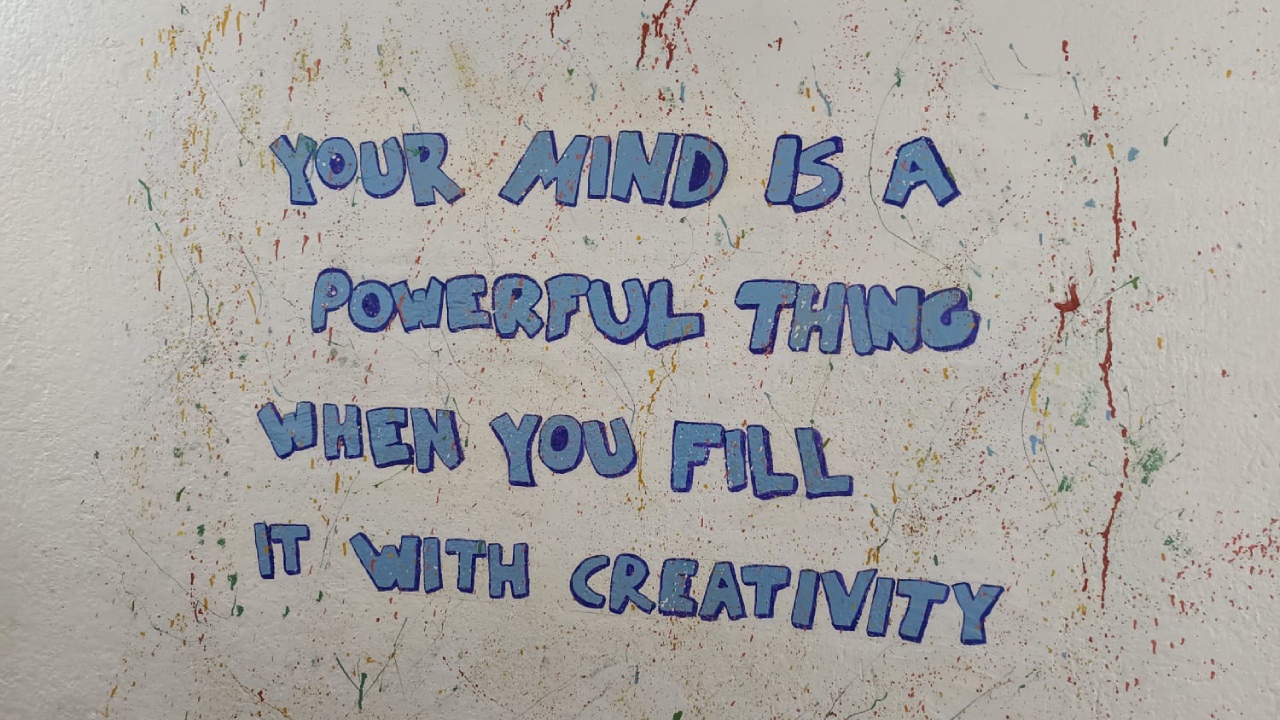 YOUR MIND IS A
POWERFUL THING
WHEN YOU FILL
IT WITH CREATIVITY